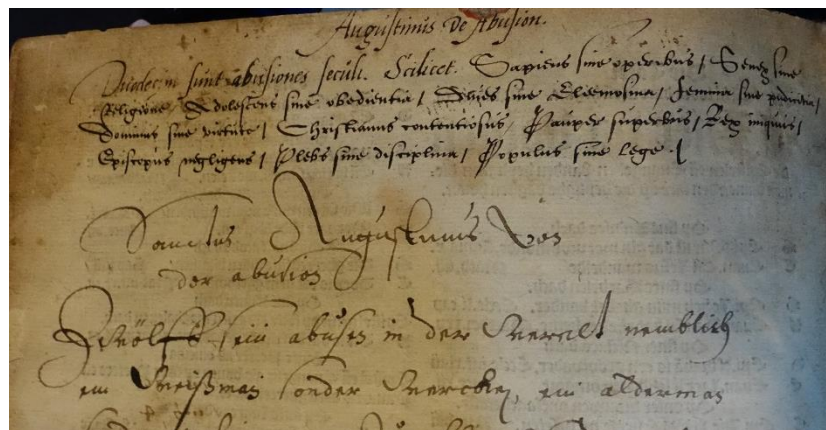 Augustinus De Abusion.
Duodecim sunt abusiones seculi. Scilicet. Sapiens sine operibus / Senex sine
Religione Adolescens sine obedientia / Dives sine Eleemosina / Femina sine pudicitia /
Dominus sine virtute / Christianus contentiosus / Pauper superbus / Rex iniquus /
Episcopus negligens / Plebs sine disciplina / Populus sine Lege /
Sanctus Augustinus Von
der abusion
Zwölff sein abusen in der Wereelt nemblich
ein Weißman sonder Wercken, ein alderman